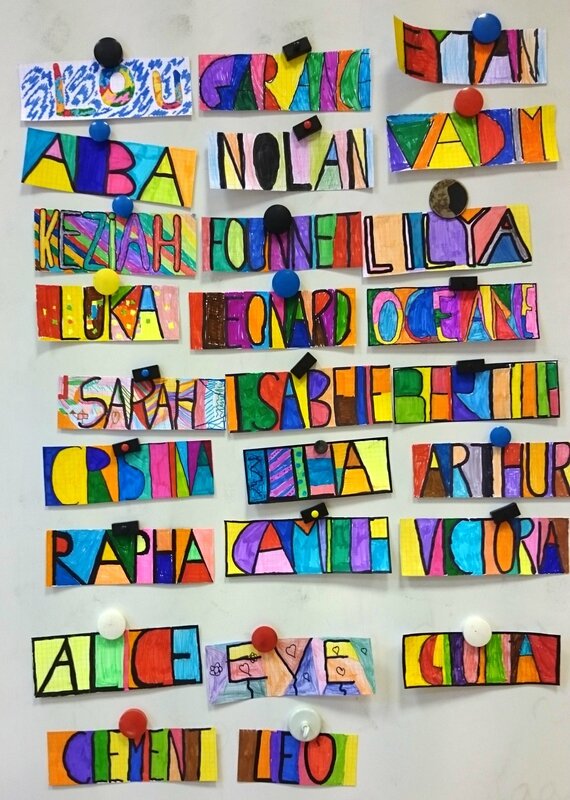 LOU
GARANCE
ETHAN
ALBA
NOLAN
VADIM
KEZIAH
LILYA
LUKA
LEONARD
OCEANE
SARAH
ISABELLE
CRISTINA
MILA
ARTHUR
RAPHA
CAMILLE
VICTORIA
ALICE
EVE
GIULIA
CLEMENT
LEO